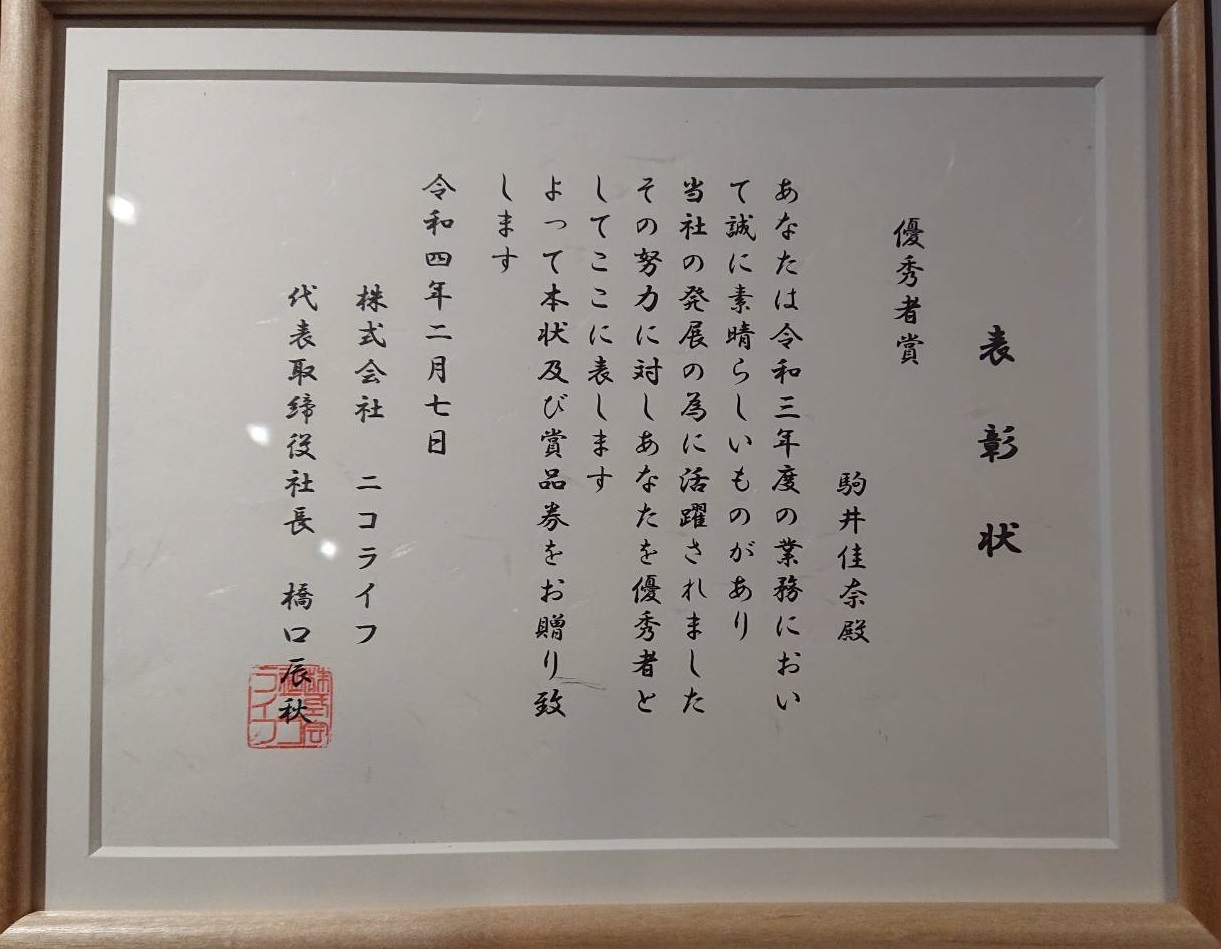 表彰状
優秀者賞
駒井佳奈殿
あなたは令和三年度の業務におい
て誠に素晴らしいものがあり
当社の発展の為に活躍されました
その努力に対しあなたを優秀者と
してここに表します
よって本状及び賞品券をお贈り致
します
令和四年二月七日
株式会社 ニコライフ
代表取締役社長 橋口辰秋